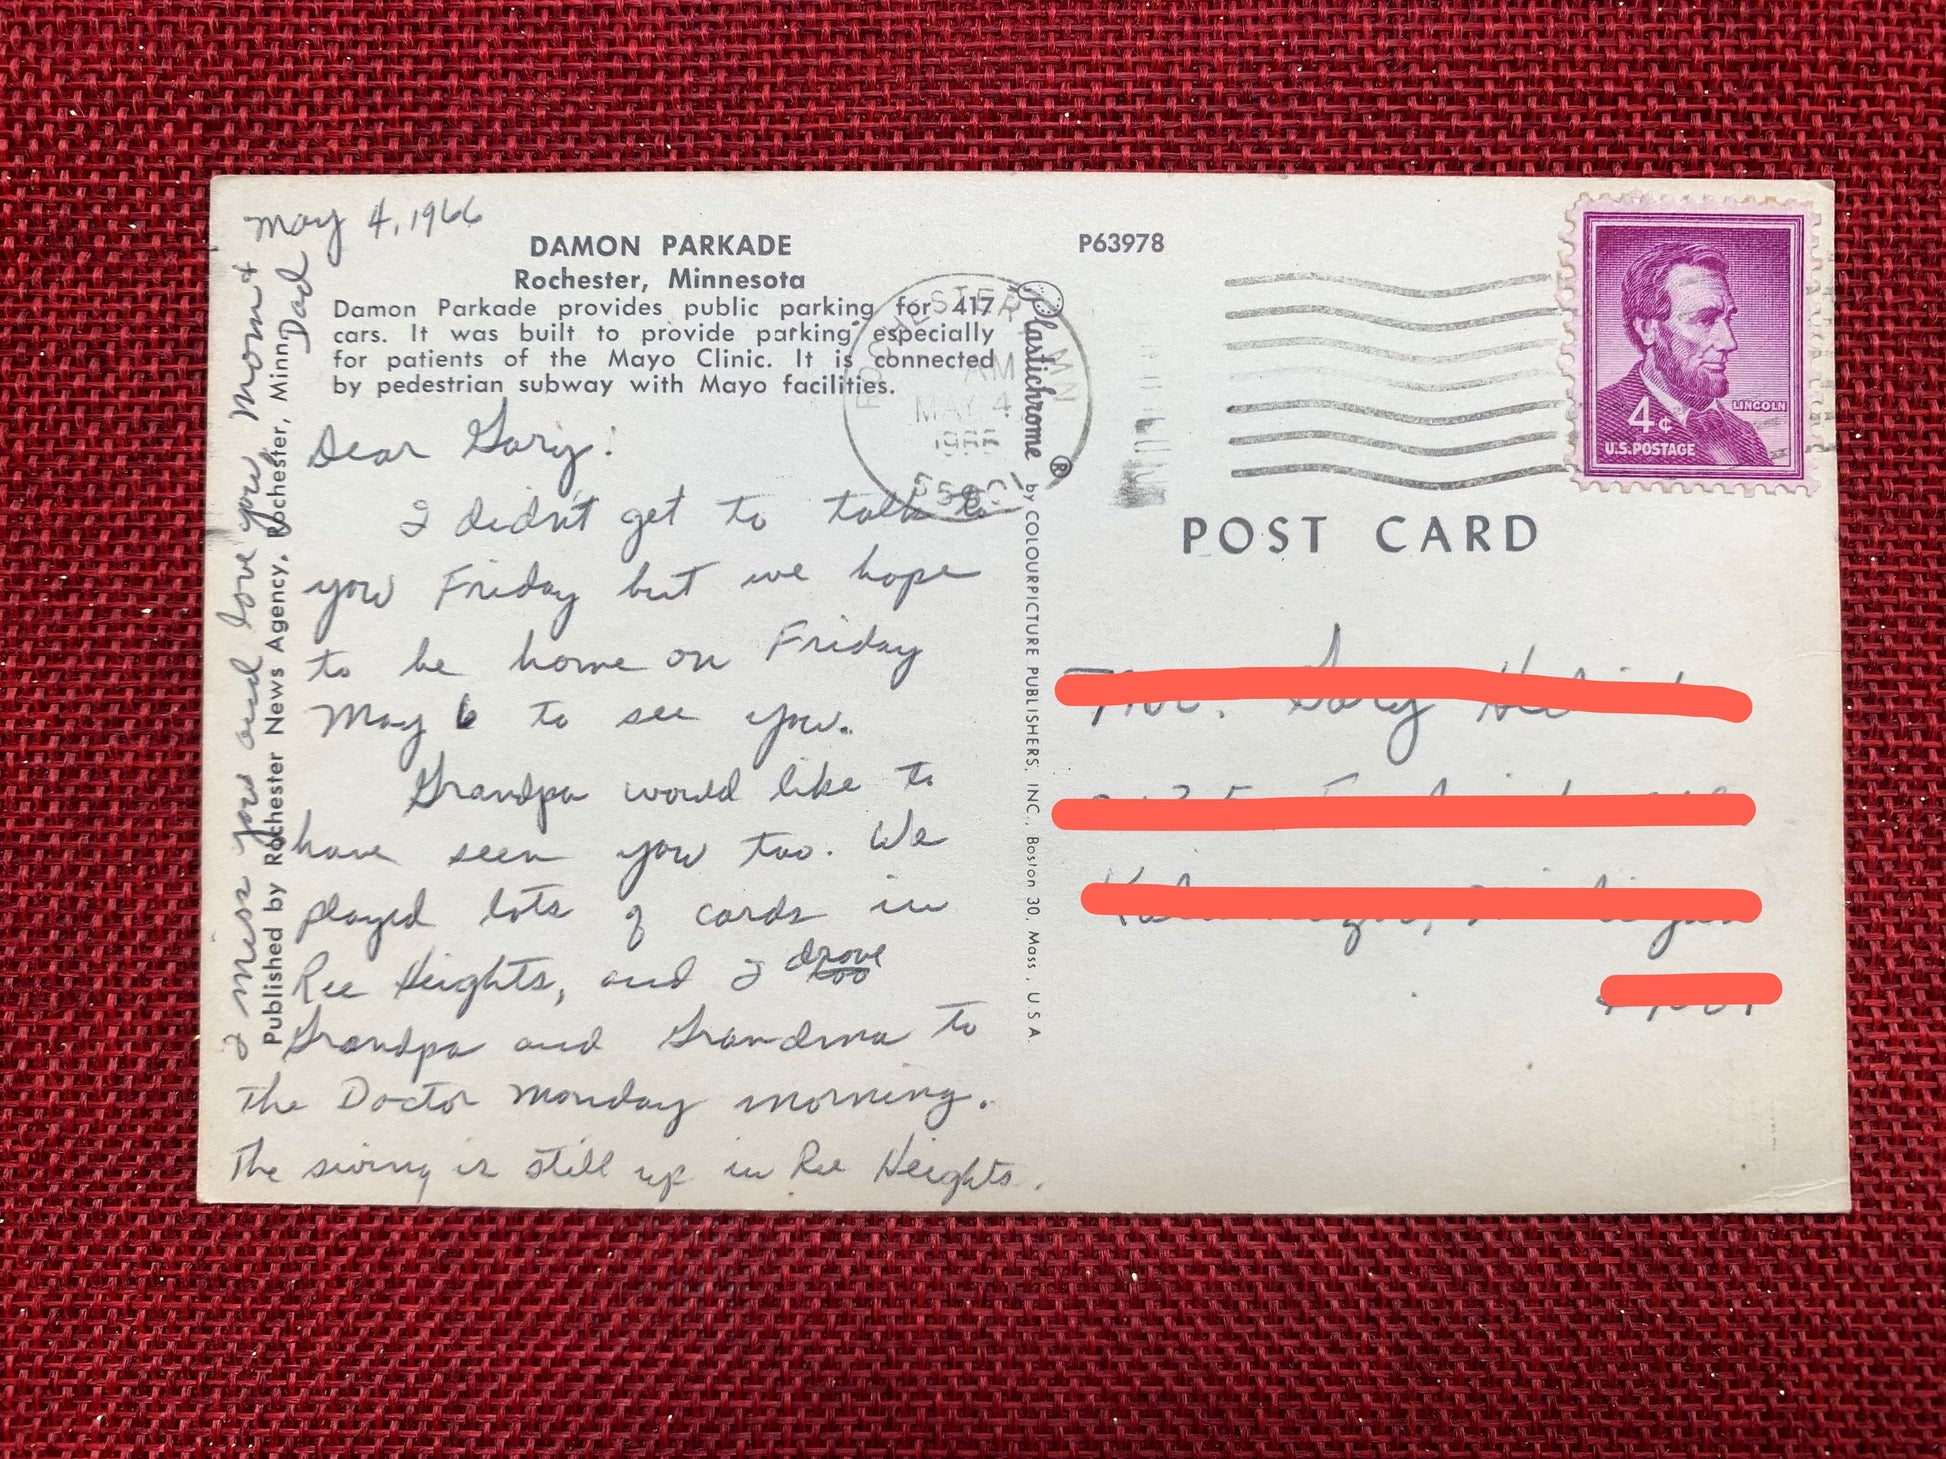 May 4, 1966
DAMON PARKADE
Rochester, Minnesota
Damon Parkade provides public parking for 417
cars. It was built to provide parking especially
for patients of the Mayo Clinic. It is connected
by pedestrian subway with Mayo facilities.
Dear Gary:
I didn't get to talk to
you Friday but we hope
to be home on Friday
May 6 to see you.
Grandpa would like to
have seen you too. We
played lots of cards in
Ree Heights, and I drove
too
Grandpa and Grandma to
the Doctor Monday morning.
The swing is still up in Ree Heights.
I miss you and love you, Mom &
Dad
Published by Rochester News Agency, Rochester, Minn.
Plastichrome ® by COLOURPICTURE PUBLISHERS, INC., Boston 30, Mass., U S A.
P63978
ROCHESTER MN
AM
MAY 4
1966
LINCOLN
4¢
U.S. POSTAGE
POST CARD